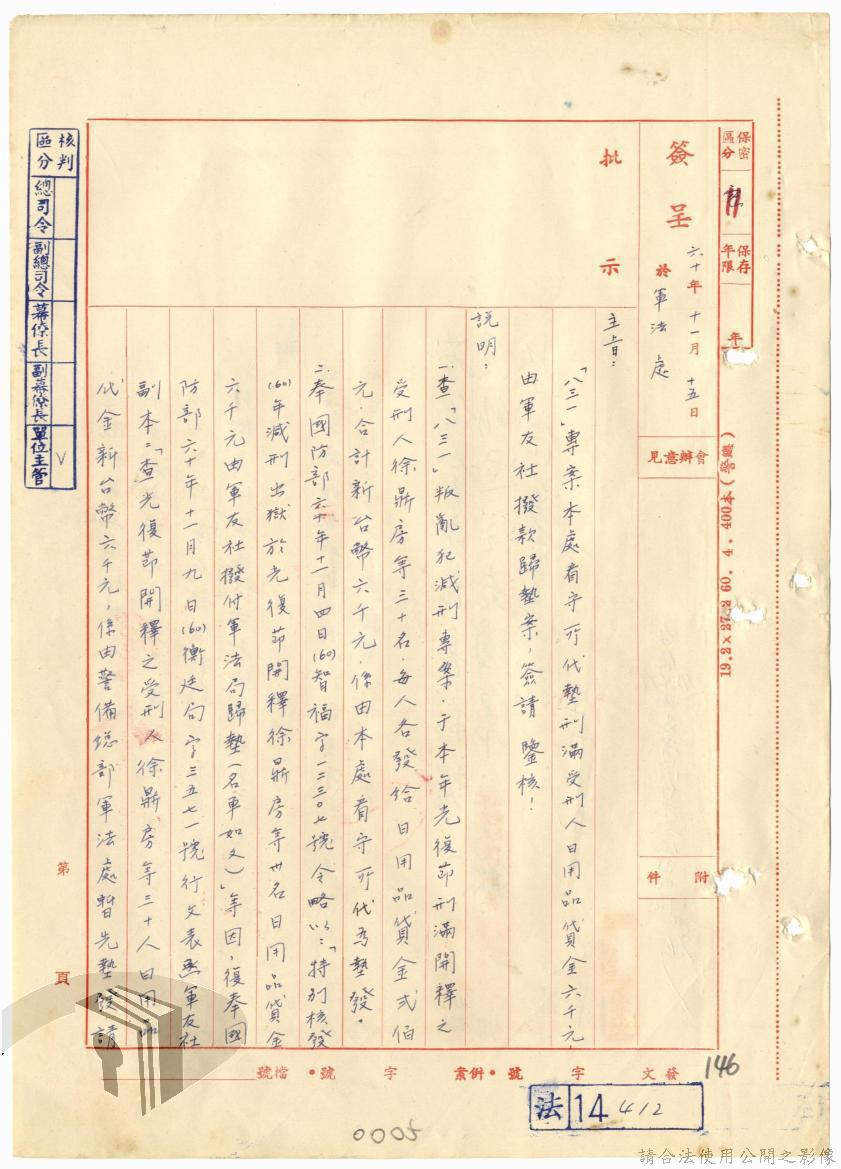 保密區分
保存年限
年
簽呈
六十年十一月十五日
於軍法處
會辦意見
附件
批示
主旨：
「八三一」專案本處看守所代墊刑滿受刑人日用品貸金六千元，
由軍友社撥款歸墊案，簽請 鑒核！
說明：
一、查「八三一」叛亂犯減刑專案，于本年光復節刑滿開釋之
受刑人徐鼎房等三十名，每人各發給日用品貸金弍佰
元，合計新台幣六千元，係由本處看守所代為墊發。
二、奉國防部六十年十一月四日(60)智福字一二三〇七號令略以：「特別核發
(60)年減刑出獄於光復節開釋徐鼎房等卅名日用品貸金
六千元由軍友社撥付軍法局歸墊（名單如文）」等因，復奉國
防部六十年十一月九日(60)衡廷局字三五七一號行文表匣軍友社
副本：「查光復節開釋之受刑人徐鼎房等三十人日用品
代金新台幣六千元，係由警備總部軍法處暫先墊發請
第 頁
核判區分
總司令
副總司令
幕僚長
副幕僚長
單位主管
V
19.2×27.2 60.4.400本
發文 字 號·併案 字 號·檔號
146
法 14 412
0005
請合法使用公開之影像